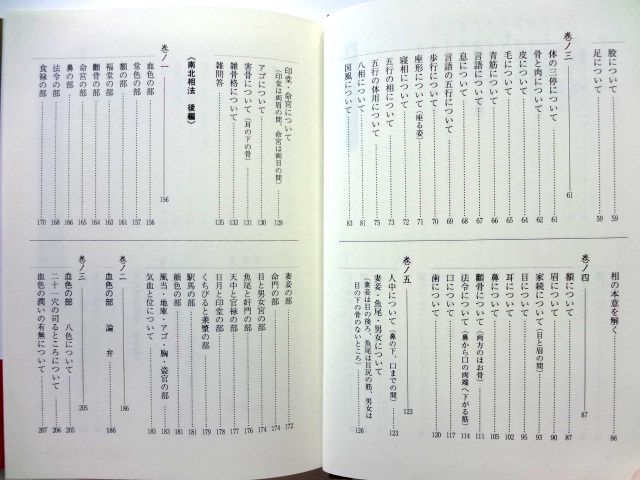 股について 59
足について 59
巻ノ三 61
体の三停について 61
骨と肉について 62
皮について 64
毛について 65
青筋について 66
言語について 67
息について 68
言語の五行について 69
歩行について 70
座形について（座る姿） 71
寝相について 72
五行の相について 73
五行の体用について 75
八相について 81
国風について 83
相の本意を解く 86
巻ノ四 87
額について 87
眉について 90
家続について（目と眉の間） 93
目について 95
耳について 102
鼻について 105
顴骨について（両方のほお骨） 111
法令について（鼻から口の両端へ下がる筋） 114
口について 117
歯について 120
巻ノ五 123
人中について（鼻の下、口までの間） 123
妻妾・魚尾・男女について
（妻妾は目の後ろ、魚尾は目尻の筋、男女は
目の下の骨のないところ） 126
印堂・命宮について
（印堂は両眉の間、命宮は両目の間） 128
アゴについて 130
害骨について（耳の下の骨） 131
雑骨格について 133
雑問答 135
〈南北相法 後編〉
巻ノ一 156
血色の部 156
常色の部 157
額の部 161
福堂の部 163
顴骨の部 164
命宮の部 164
鼻の部 166
法令の部 168
食禄の部 170
妻妾の部 172
命門の部 174
目と男女宮の部 174
魚尾と奸門の部 176
天中と官禄の部 177
日月と印堂の部 178
くちびると美鬢の部 179
駅馬の部 181
顔色の部 181
風当・地庫・アゴ・胸・盗官の部 183
気血と位について 185
巻ノ二 186
血色の部 論弁 186
巻ノ三 205
血色の部 八色について 205
二十一穴の司るところについて 206
血色の潤いの有無について 207